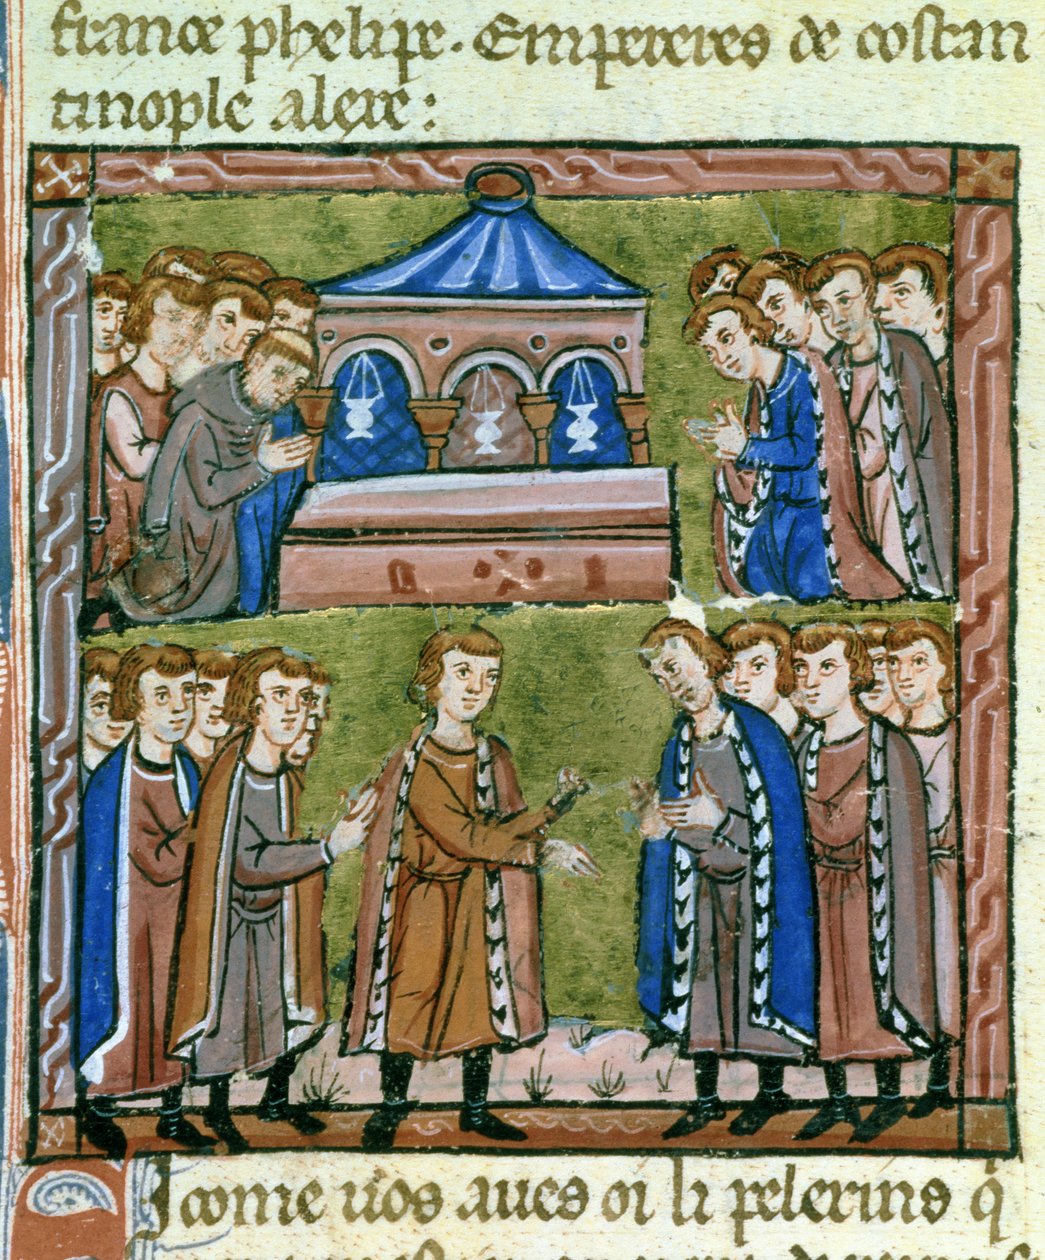 france phelippe. Empereires de costan
tinople alere :
Icome uos aues oi li pelerins qⁱ